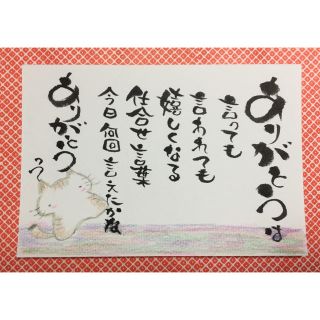 ありがとうは
言っても
言われても
嬉しくなる
仕合せ言葉
今日何回言えたかな
ありがとうって